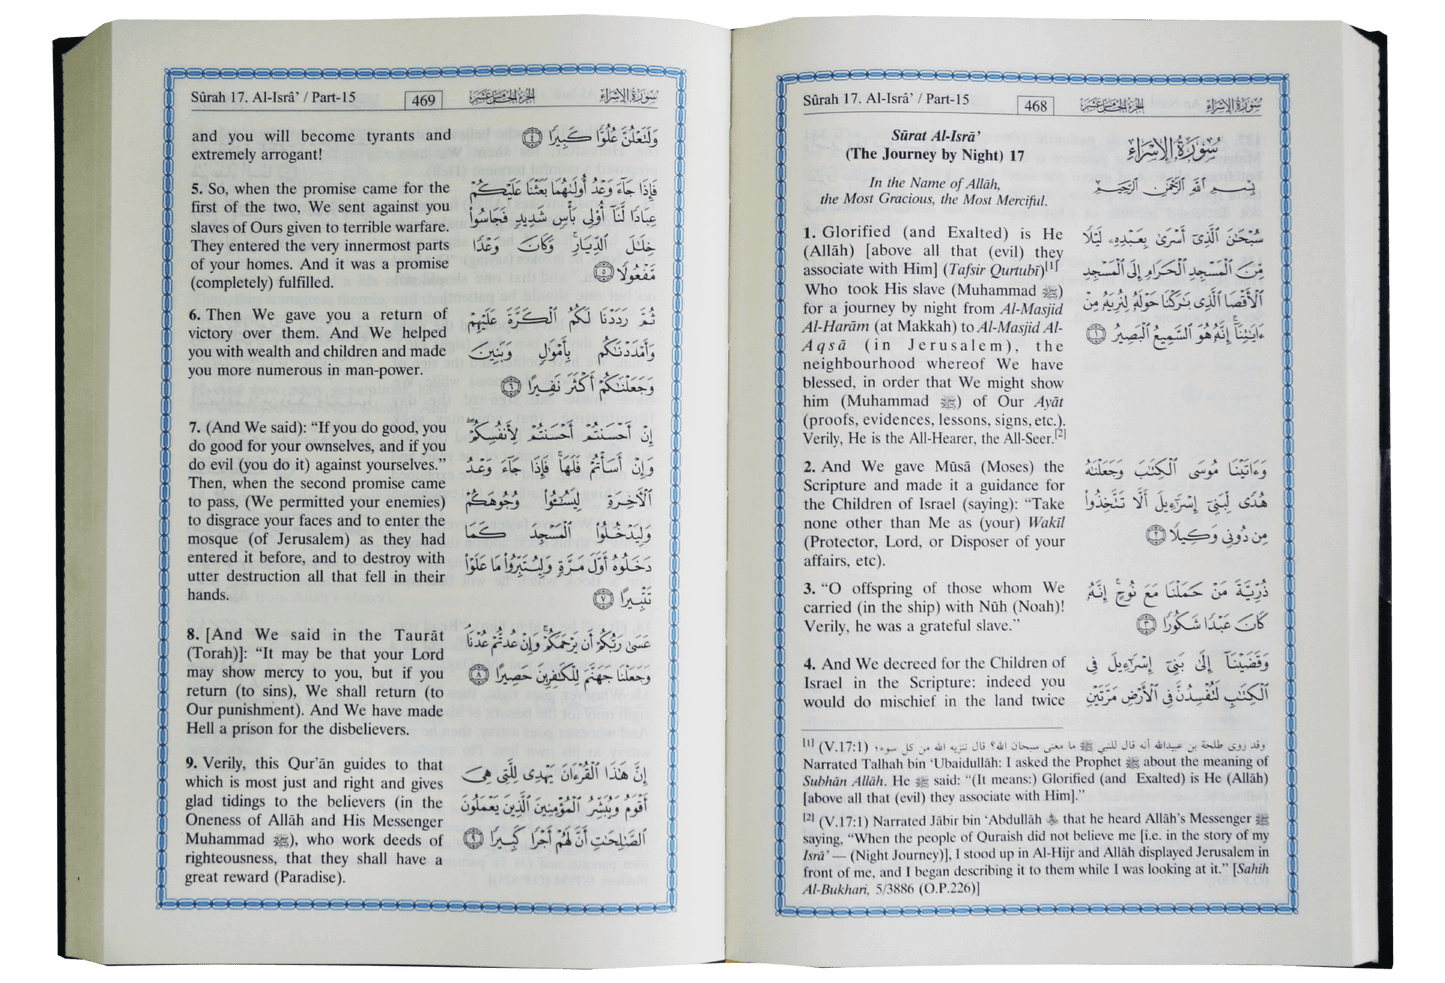 Sûrah 17. Al-Isrâ’ / Part-15
468
الجزء الخامس عشر
سورة الإسراء
Sūrat Al-Isrā’
(The Journey by Night) 17
In the Name of Allāh,
the Most Gracious, the Most Merciful.
1. Glorified (and Exalted) is He
(Allāh) [above all that (evil) they
associate with Him] (Tafsir Qurtubī)[1]
Who took His slave (Muhammad ﷺ)
for a journey by night from Al-Masjid
Al-Harām (at Makkah) to Al-Masjid Al-
Aqsā (in Jerusalem), the
neighbourhood whereof We have
blessed, in order that We might show
him (Muhammad ﷺ) of Our Ayāt
(proofs, evidences, lessons, signs, etc.).
Verily, He is the All-Hearer, the All-Seer.[2]
2. And We gave Mūsā (Moses) the
Scripture and made it a guidance for
the Children of Israel (saying): “Take
none other than Me as (your) Wakīl
(Protector, Lord, or Disposer of your
affairs, etc).
3. “O offspring of those whom We
carried (in the ship) with Nūh (Noah)!
Verily, he was a grateful slave.”
4. And We decreed for the Children of
Israel in the Scripture: indeed you
would do mischief in the land twice
سُورَةُ الإِسْرَاءِ
بِسْمِ اللَّهِ الرَّحْمَٰنِ الرَّحِيمِ
سُبْحَٰنَ ٱلَّذِىٓ أَسْرَىٰ بِعَبْدِهِۦ لَيْلًا
مِّنَ ٱلْمَسْجِدِ ٱلْحَرَامِ إِلَى ٱلْمَسْجِدِ
ٱلْأَقْصَا ٱلَّذِى بَٰرَكْنَا حَوْلَهُۥ لِنُرِيَهُۥ مِنْ
ءَايَٰتِنَآ ۚ إِنَّهُۥ هُوَ ٱلسَّمِيعُ ٱلْبَصِيرُ ١
وَءَاتَيْنَا مُوسَى ٱلْكِتَٰبَ وَجَعَلْنَٰهُ
هُدًى لِّبَنِىٓ إِسْرَٰٓءِيلَ أَلَّا تَتَّخِذُوا۟
مِن دُونِى وَكِيلًا ٢
ذُرِّيَّةَ مَنْ حَمَلْنَا مَعَ نُوحٍ ۚ إِنَّهُۥ
كَانَ عَبْدًا شَكُورًا ٣
وَقَضَيْنَآ إِلَىٰ بَنِىٓ إِسْرَٰٓءِيلَ فِى
ٱلْكِتَٰبِ لَتُفْسِدُنَّ فِى ٱلْأَرْضِ مَرَّتَيْنِ
[1] (V.17:1) وقد روى طلحة بن عبيدالله أنه قال للنبي ﷺ ما معنى سبحان الله؟ قال تنزيه الله من كل سوء؛
Narrated Talhah bin ‘Ubaidullāh: I asked the Prophet ﷺ about the meaning of
Subhān Allāh. He ﷺ said: “(It means:) Glorified (and Exalted) is He (Allāh)
[above all that (evil) they associate with Him].”
[2] (V.17:1) Narrated Jābir bin ‘Abdullāh that he heard Allāh’s Messenger ﷺ
saying, “When the people of Quraish did not believe me [i.e. in the story of my
Isrā’ — (Night Journey)], I stood up in Al-Hijr and Allāh displayed Jerusalem in
front of me, and I began describing it to them while I was looking at it.” [Sahih
Al-Bukhari, 5/3886 (O.P.226)]
Sûrah 17. Al-Isrâ’ / Part-15
469
الجزء الخامس عشر
سورة الإسراء
and you will become tyrants and
extremely arrogant!
5. So, when the promise came for the
first of the two, We sent against you
slaves of Ours given to terrible warfare.
They entered the very innermost parts
of your homes. And it was a promise
(completely) fulfilled.
6. Then We gave you a return of
victory over them. And We helped
you with wealth and children and made
you more numerous in man-power.
7. (And We said): “If you do good, you
do good for your ownselves, and if you
do evil (you do it) against yourselves.”
Then, when the second promise came
to pass, (We permitted your enemies)
to disgrace your faces and to enter the
mosque (of Jerusalem) as they had
entered it before, and to destroy with
utter destruction all that fell in their
hands.
8. [And We said in the Taurāt
(Torah)]: “It may be that your Lord
may show mercy to you, but if you
return (to sins), We shall return (to
Our punishment). And We have made
Hell a prison for the disbelievers.
9. Verily, this Qur’ān guides to that
which is most just and right and gives
glad tidings to the believers (in the
Oneness of Allāh and His Messenger
Muhammad ﷺ), who work deeds of
righteousness, that they shall have a
great reward (Paradise).
وَلَتَعْلُنَّ عُلُوًّا كَبِيرًا ٤
فَإِذَا جَآءَ وَعْدُ أُولَىٰهُمَا بَعَثْنَا عَلَيْكُمْ
عِبَادًا لَّنَآ أُو۟لِى بَأْسٍ شَدِيدٍ فَجَاسُوا۟
خِلَٰلَ ٱلدِّيَارِ ۚ وَكَانَ وَعْدًا
مَّفْعُولًا ٥
ثُمَّ رَدَدْنَا لَكُمُ ٱلْكَرَّةَ عَلَيْهِمْ
وَأَمْدَدْنَٰكُم بِأَمْوَٰلٍ وَبَنِينَ
وَجَعَلْنَٰكُمْ أَكْثَرَ نَفِيرًا ٦
إِنْ أَحْسَنتُمْ أَحْسَنتُمْ لِأَنفُسِكُمْ ۖ
وَإِنْ أَسَأْتُمْ فَلَهَا ۚ فَإِذَا جَآءَ وَعْدُ
ٱلْأَخِرَةِ لِيَسُـۥٓـُٔوا۟ وُجُوهَكُمْ
وَلِيَدْخُلُوا۟ ٱلْمَسْجِدَ كَمَا
دَخَلُوهُ أَوَّلَ مَرَّةٍ وَلِيُتَبِّرُوا۟ مَا عَلَوْا۟
تَتْبِيرًا ٧
عَسَىٰ رَبُّكُمْ أَن يَرْحَمَكُمْ ۚ وَإِنْ عُدتُّمْ عُدْنَا ۘ
وَجَعَلْنَا جَهَنَّمَ لِلْكَٰفِرِينَ حَصِيرًا ٨
إِنَّ هَٰذَا ٱلْقُرْءَانَ يَهْدِى لِلَّتِى هِىَ
أَقْوَمُ وَيُبَشِّرُ ٱلْمُؤْمِنِينَ ٱلَّذِينَ يَعْمَلُونَ
ٱلصَّٰلِحَٰتِ أَنَّ لَهُمْ أَجْرًا كَبِيرًا ٩